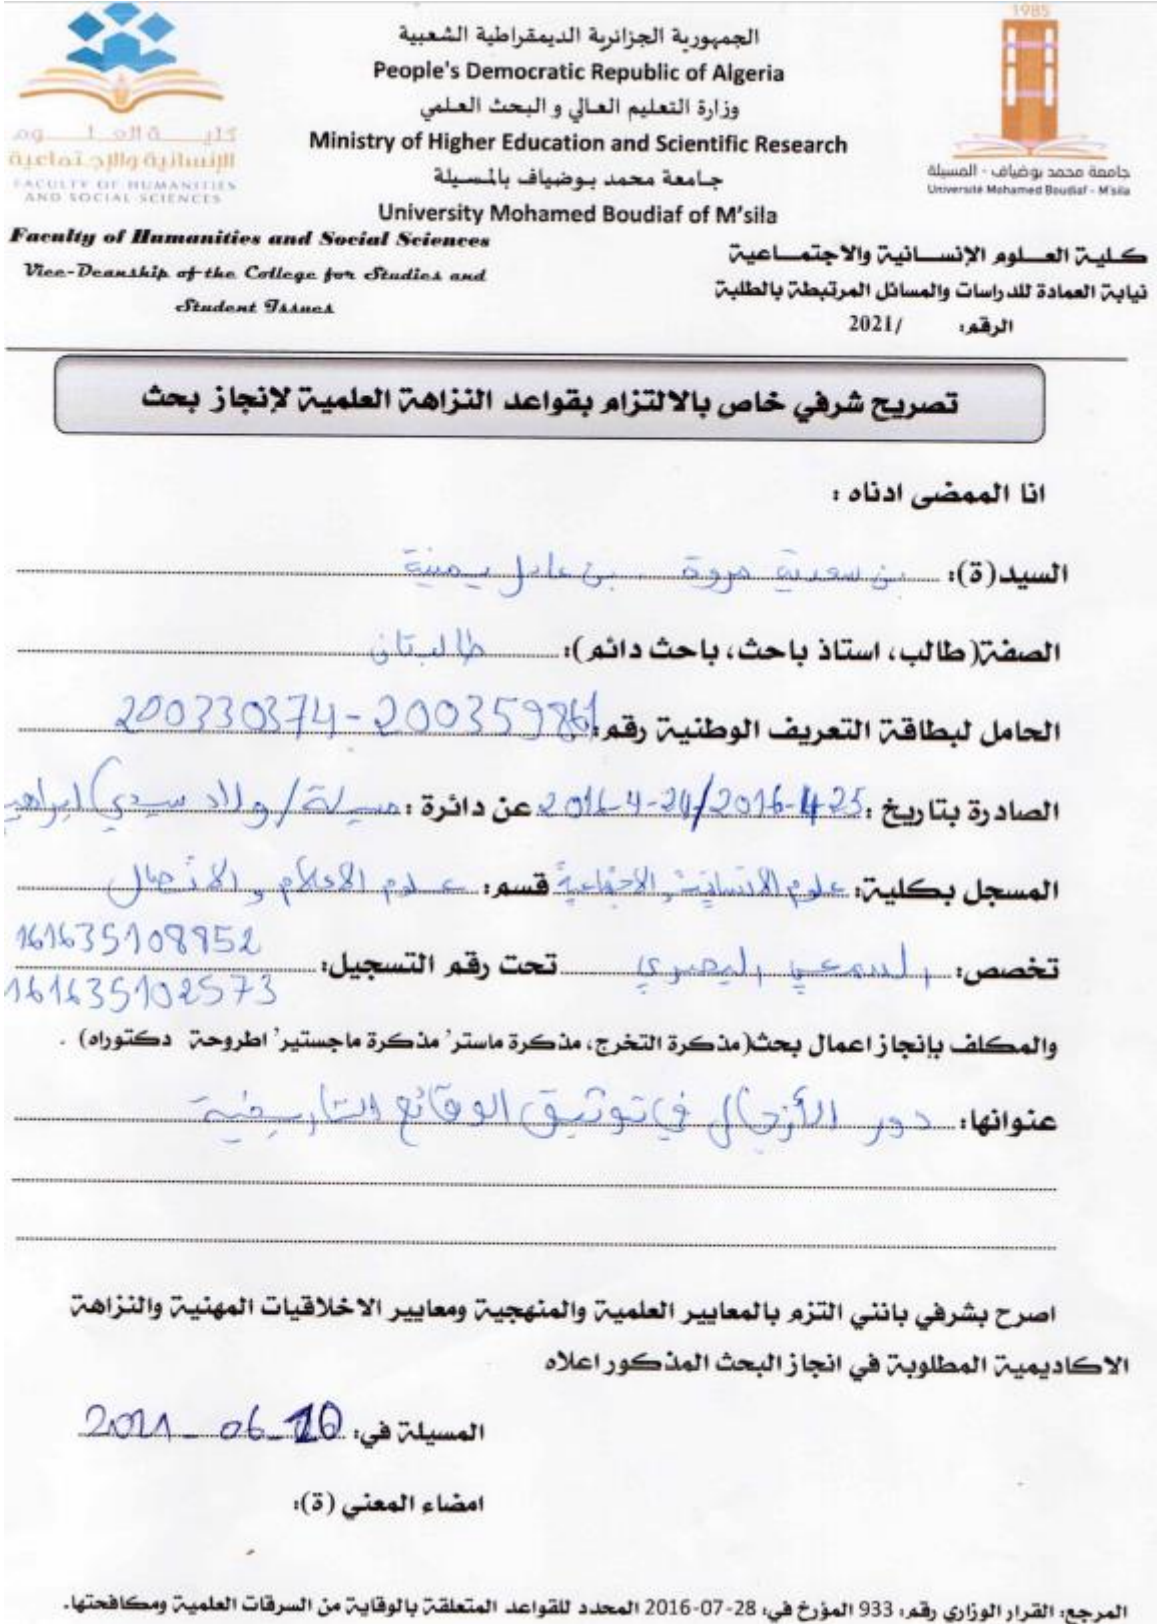 كليــة العلــوم
الإنسانية والإجتماعية
FACULTY OF HUMANITIES
AND SOCIAL SCIENCES
الجمهورية الجزائرية الديمقراطية الشعبية
People's Democratic Republic of Algeria
وزارة التعليم العالي و البحث العلمي
Ministry of Higher Education and Scientific Research
جامعة محمد بوضياف بالمسيلة
University Mohamed Boudiaf of M'sila
1985
جامعة محمد بوضياف - المسيلة
Université Mohamed Boudiaf - M'sila
Faculty of Humanities and Social Sciences
Vice-Deanship of the College for Studies and
Student Issues
كلية العلوم الإنسانية والاجتماعية
نيابة العمادة للدراسات والمسائل المرتبطة بالطلبة
الرقم: /2021
تصريح شرفي خاص بالالتزام بقواعد النزاهة العلمية لإنجاز بحث
انا الممضى ادناه :
السيد(ة): بن سعدية مروة . بن عادل يمينة
الصفة( طالب، استاذ باحث، باحث دائم): طالبتان
الحامل لبطاقة التعريف الوطنية رقم: 200330374-200359861
الصادرة بتاريخ : 2016-4-25/2016-4-24 عن دائرة : مسيلة / ولاد سيدي ابراهيم
المسجل بكلية: علوم الانسانية والاجتماعية قسم: علوم الاعلام والاتصال
تخصص: السمعي البصري تحت رقم التسجيل: 161635108852
161635102573
والمكلف بإنجاز اعمال بحث(مذكرة التخرج، مذكرة ماستر' مذكرة ماجستير' اطروحة دكتوراه) .
عنوانها: دور الأزجال في توثيق الوقائع التاريخية
اصرح بشرفي بانني التزم بالمعايير العلمية والمنهجية ومعايير الاخلاقيات المهنية والنزاهة
الاكاديمية المطلوبة في انجاز البحث المذكور اعلاه
المسيلة في: 2021-06-10
امضاء المعني (ة):
المرجع: القرار الوزاري رقم: 933 المؤرخ في: 28-07-2016 المحدد للقواعد المتعلقة بالوقاية من السرقات العلمية ومكافحتها.